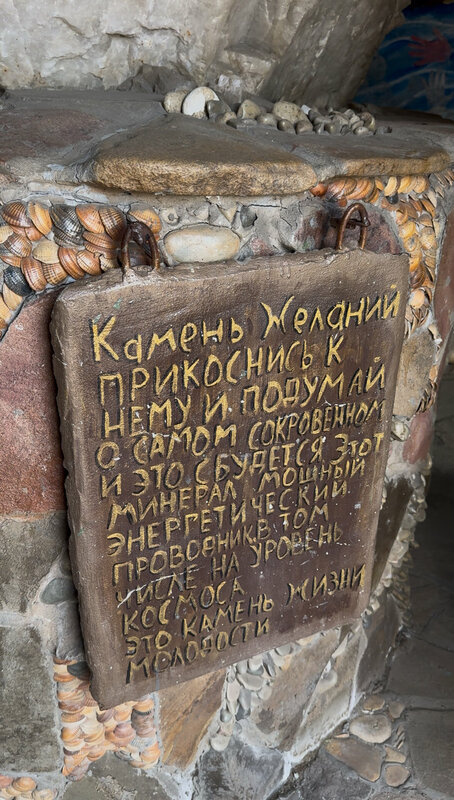 Камень Желаний
ПРИКОСНИСЬ К
НЕМУ И ПОДУМАЙ
О САМОМ СОКРОВЕННОМ
И ЭТО СБУДЕТСЯ ЭТОТ
МИНЕРАЛ МОЩНЫЙ
ЭНЕРГЕТИЧЕСКИЙ
ПРОВОДНИК, В ТОМ
ЧИСЛЕ НА УРОВЕНЬ
КОСМОСА
ЭТО КАМЕНЬ ЖИЗНИ
МОЛОДОСТИ